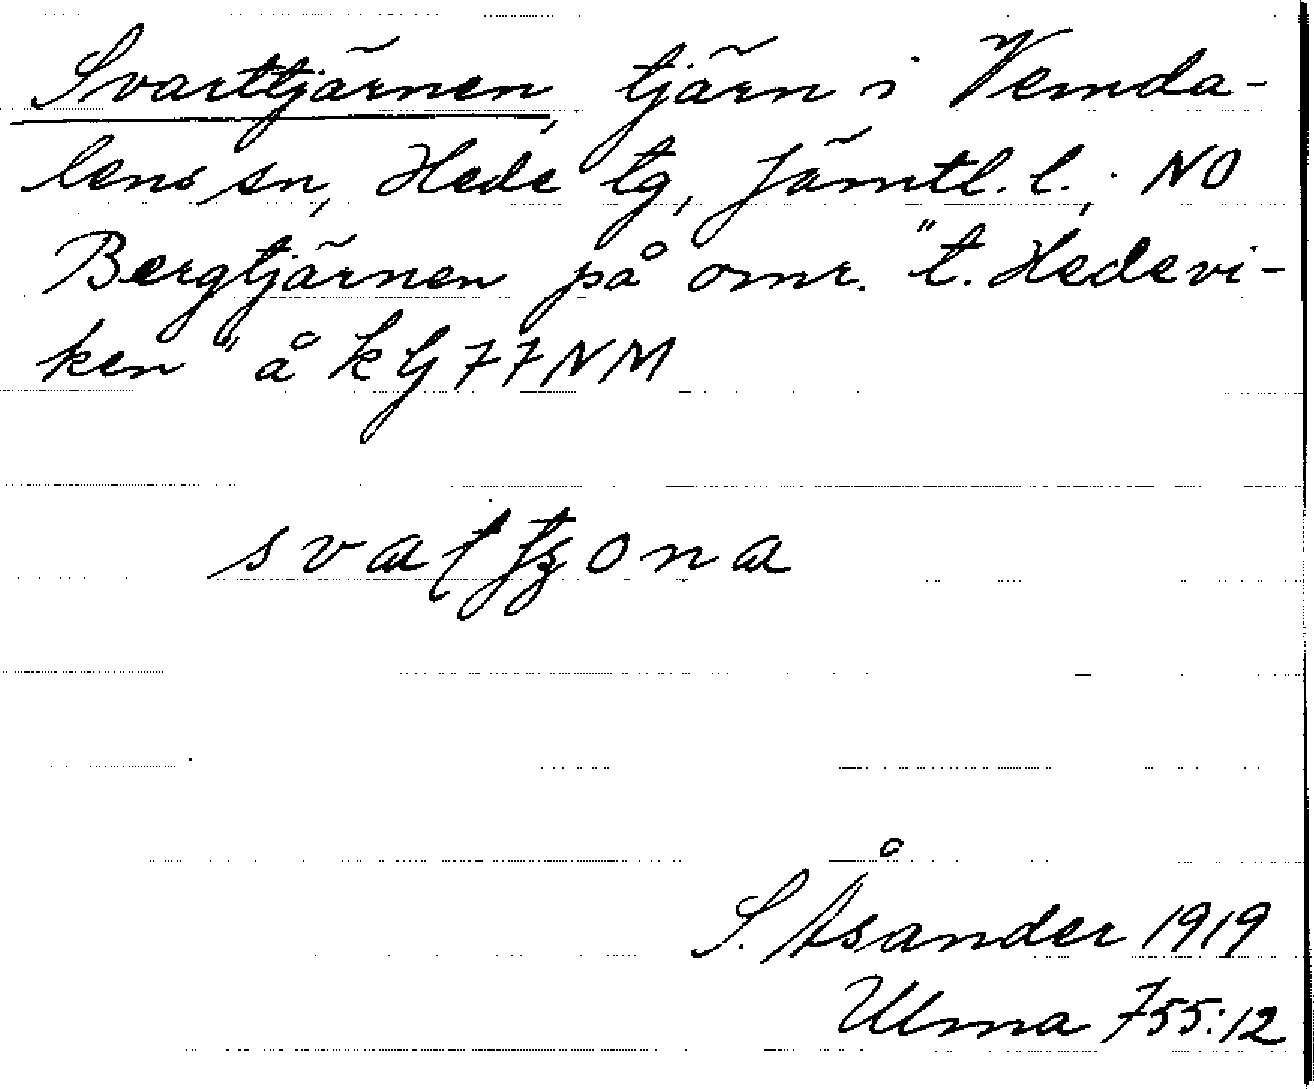 Svarttjärnen, tjärn i Vemda-
lens sn, Hede tg, Jämtl. l.; NO
Bergtjärnen på omr. "t. Hedevi-
ken" å kG77NM
S. Åsander 1919
Ulma 755:12